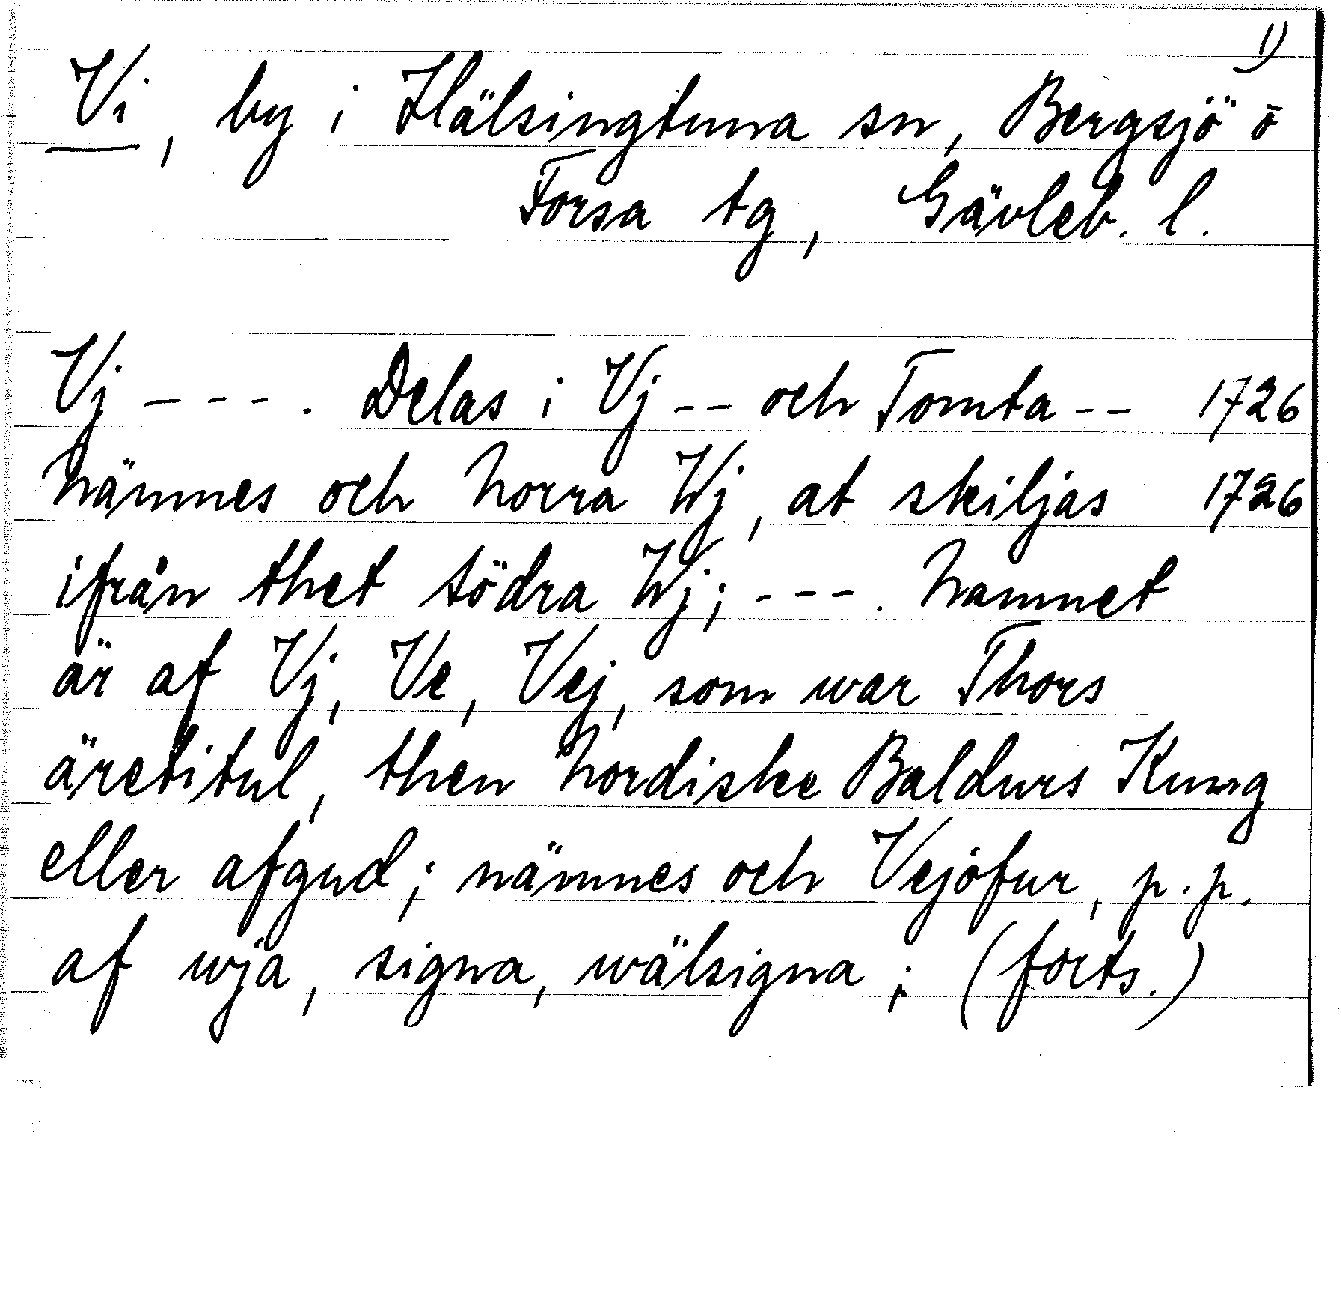 1)
Vi, by i Hälsingtuna sn, Bergsjö o
Forsa tg, Gävleb. l.
Vj - - - -. Delas i Vj - - och Tomta - - 1726
nämnes och Norra Wj, at skiljas 1726
ifrån thet södra Wj; - - - -. Namnet
är af Vj, Ve, Vej, som war Thors
äretitul, then Nordiske Baldurs Kung
eller afgud; nämnes och Vejofur, p.p.
af wja, signa, wälsigna; (forts.)